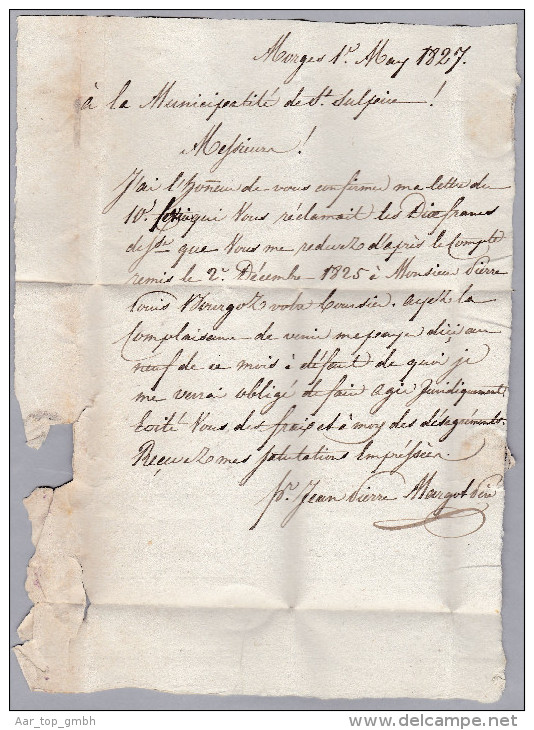 Morges 1r. May 1827.
à la Municipalité de St. Sulpice !
Messieurs !
J'ai l'honneur de vous confirmer ma lettre du
10e. qui Vous réclamait les Dix francs
de que Vous me redevez d'après le Compte
remis le 2e. Décembre 1825 à Monsieur Pierre
Louis votre boursier. ayez la
Complaisance de venir me payer d'ici au
neuf de ce mois à défaut de quoi je
me verrai obligé de faire agir Juridiquement
Evités Vous des frais et à moy des désagréments.
Recevez mes salutations Empressées.
pr. Jean Pierre Margot
Aar_top_gmbh
www.delcampe.net